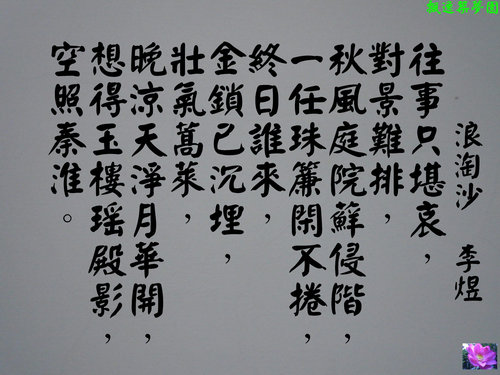 楓逸築夢園
浪淘沙 李煜
往事只堪哀，
對景難排，
秋風庭院蘚侵階，
一任珠簾閑不捲，
終日誰來，
金鎖已沉埋，
壯氣蒿萊，
晚涼天淨月華開，
想得玉樓瑤殿影，
空照秦淮。